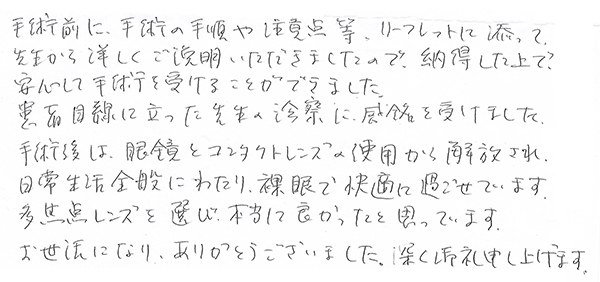 手術前に、手術の手順や注意点等、リーフレットに添って、
先生から詳しくご説明いただきましたので、納得した上で、
安心して手術を受けることができました。
患者目線に立った先生の診察に、感銘を受けました。
手術後は、眼鏡とコンタクトレンズの使用から解放され、
日常生活全般にわたり、裸眼で快適に過ごせています。
多焦点レンズを選び、本当に良かったと思っています。
お世話になり、ありがとうございました。深く御礼申し上げます。